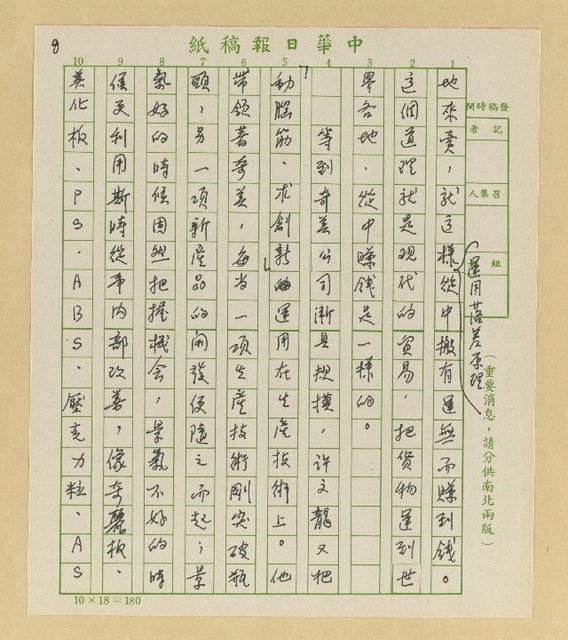 中華日報稿紙
8
發稿時間
記者
召集人
組
（重要消息，請分供南北兩版）
1 2 3 4 5 6 7 8 9 10
運用落差原理
地來賣，就這樣從中搬有運無而賺到錢。
這個道理就是現代的貿易，把貨物運到世
界各地，從中賺錢是一樣的。
等到奇美公司漸具規模，許文龍又把
「動腦筋．求創新」的運用在生產技術上。他
帶領著奇美，每當一項生產技術剛突破瓶
頸，另一項新產品的開發便隨之而起；景
氣好的時候固然把握機會，景氣不好的時
候更利用斯時從事內部改善，像奇麗板．
美化板．PS．ABS．壓克力粒．AS
10×18＝180